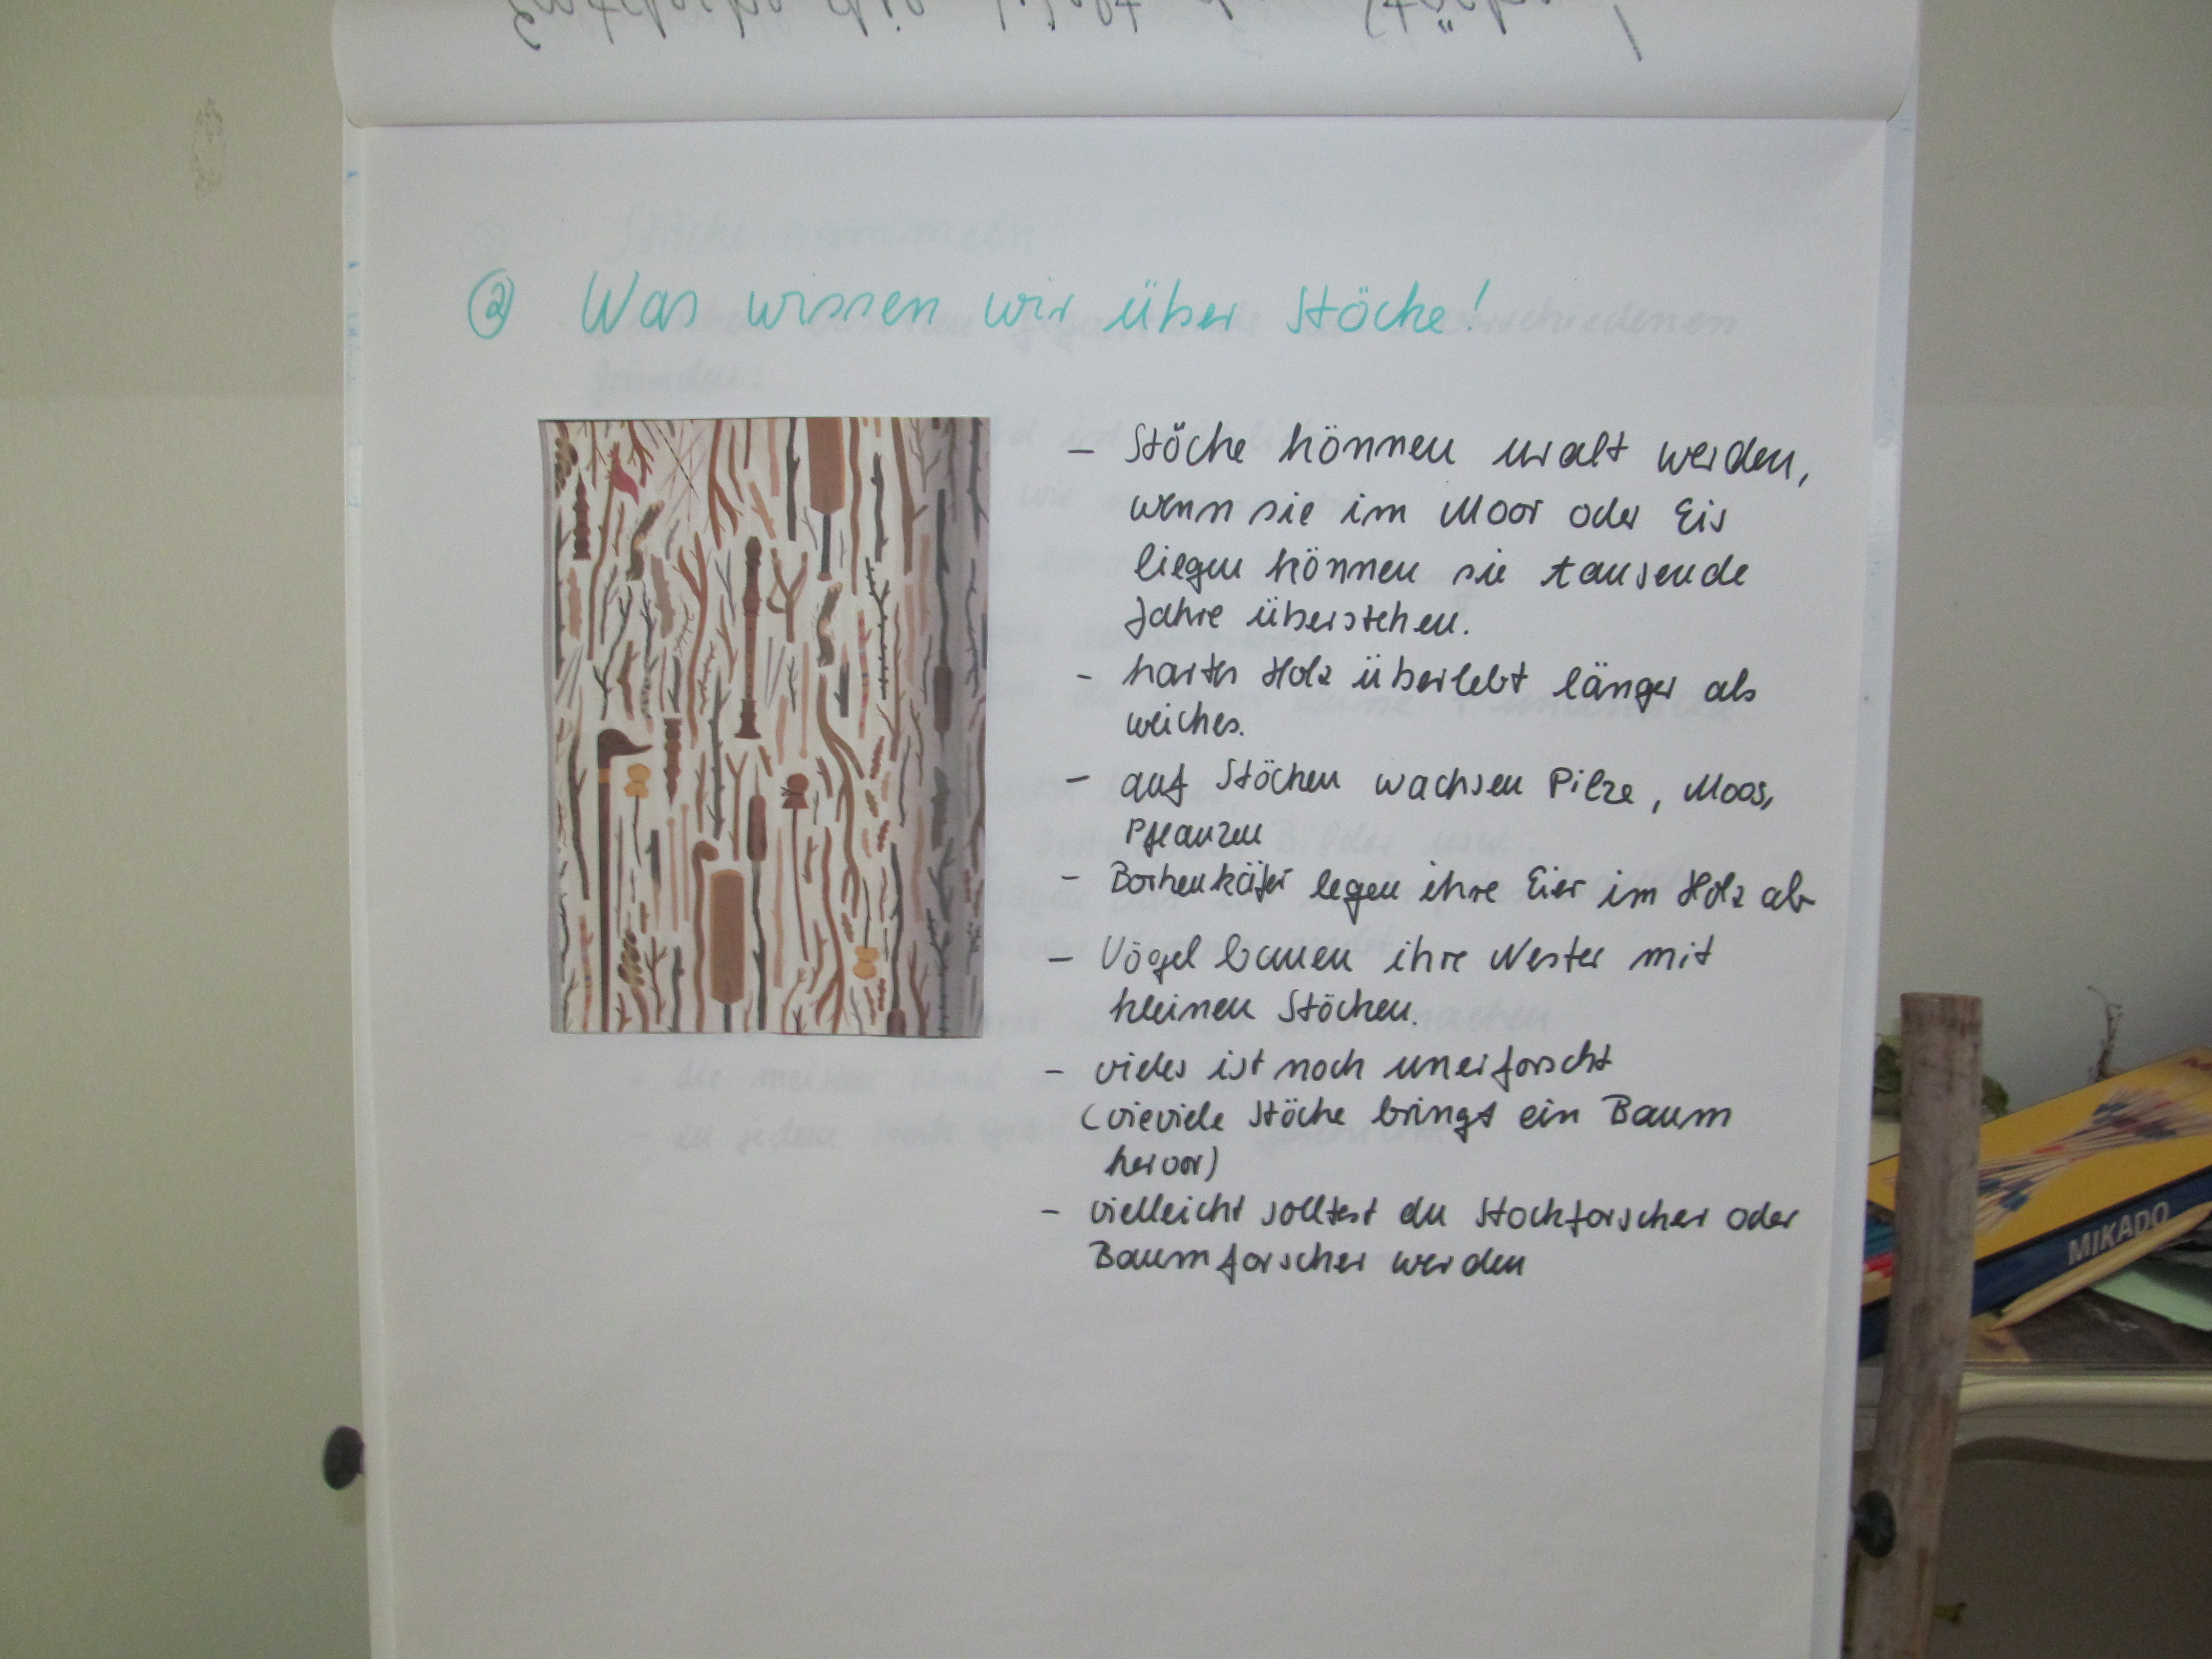 Entdecke die Welt der Stöcke!
② Was wissen wir über Stöcke!
– Stöcke können uralt werden,
wenn sie im Moor oder Eis
liegen können sie tausende
Jahre überstehen.
- hartes Holz überlebt länger als
weiches.
- auf Stöcken wachsen Pilze, Moos,
Pflanzen
- Borkenkäfer legen ihre Eier im Holz ab
– Vögel bauen ihre Nester mit
kleinen Stöcken.
- vieles ist noch unerforscht
(vieviele Stöcke bringt ein Baum
hervor)
- vielleicht solltest du Stockforscher oder
Baumforscher werden
MIKADO